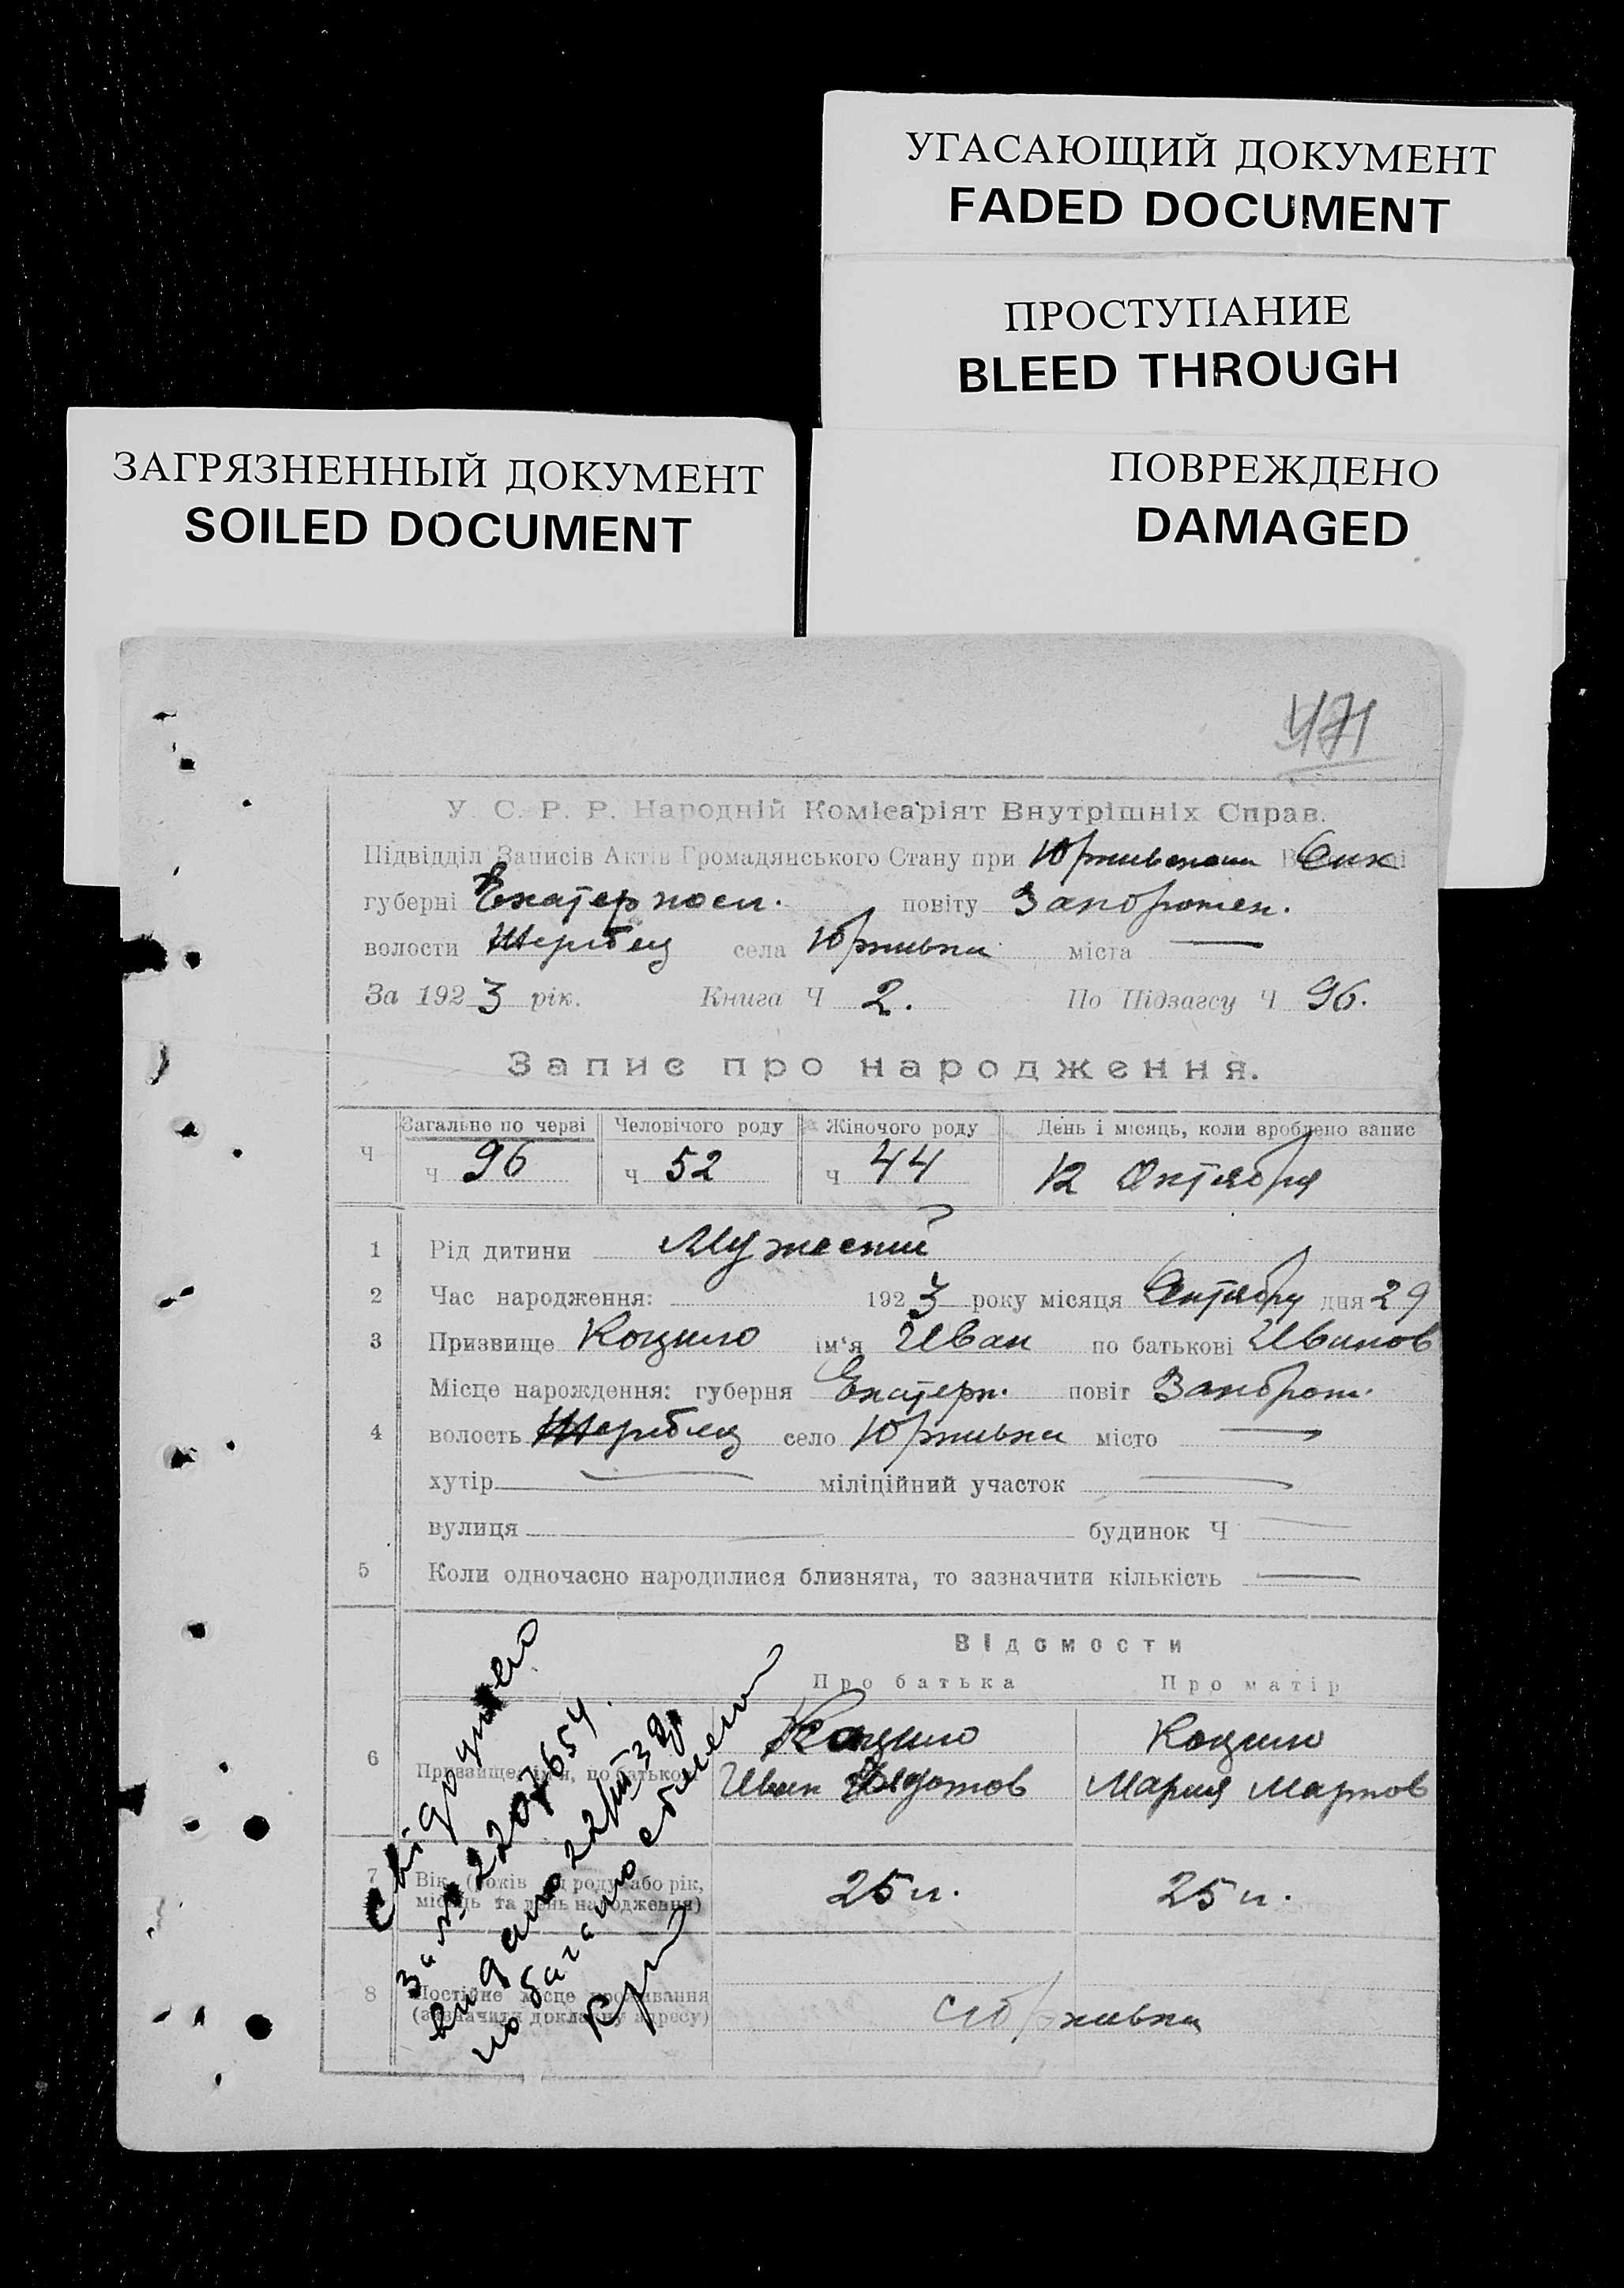 УГАСАЮЩИЙ ДОКУМЕНТ
FADED DOCUMENT
ПРОСТУПАНИЕ
BLEED THROUGH
ПОВРЕЖДЕНО
DAMAGED
ЗАГРЯЗНЕННЫЙ ДОКУМЕНТ
SOILED DOCUMENT
471
У. С. Р. Р. Народній Комісаріят Внутрішніх Справ.
Підвідділ Записів Актів Громадянського Стану при
губерні Екатерносл. повіту Запорожск.
волости Щербец села Юрживки міста —
За 1923 рік. Книга Ч 2. По Підзагсу Ч 96.
Запис про народження.
Ч Загальне по черві Человічого роду Жіночого роду День і місяць, коли зроблено запис
ч 96 ч 52 ч 44 12 Октября
1 Рід дитини Мужеский
2 Час народження: 1923 року місяця дня 29
3 Призвище Коцило ім'я Иван по батькові Иванов
Місце нарождення: губерня Екатерн. повіт Запорож.
4 волость Щербец село Юрживки місто —
хутір — міліційний участок —
вулиця — будинок Ч —
5 Коли одночасно народилися близнята, то зазначити кількість —
Відомости
Про батька Про матір
6 Призвище, ім'я, по батькові Коцило Коцило
Иван Мария Мартов
7 Вік (років від роду або рік, місяць та день народження) 25 л. 25 л.
8 Постійне місце проживання
(зазначити докладну адресу)
свідоцтво
за № 2207654.
видано 22/III 3